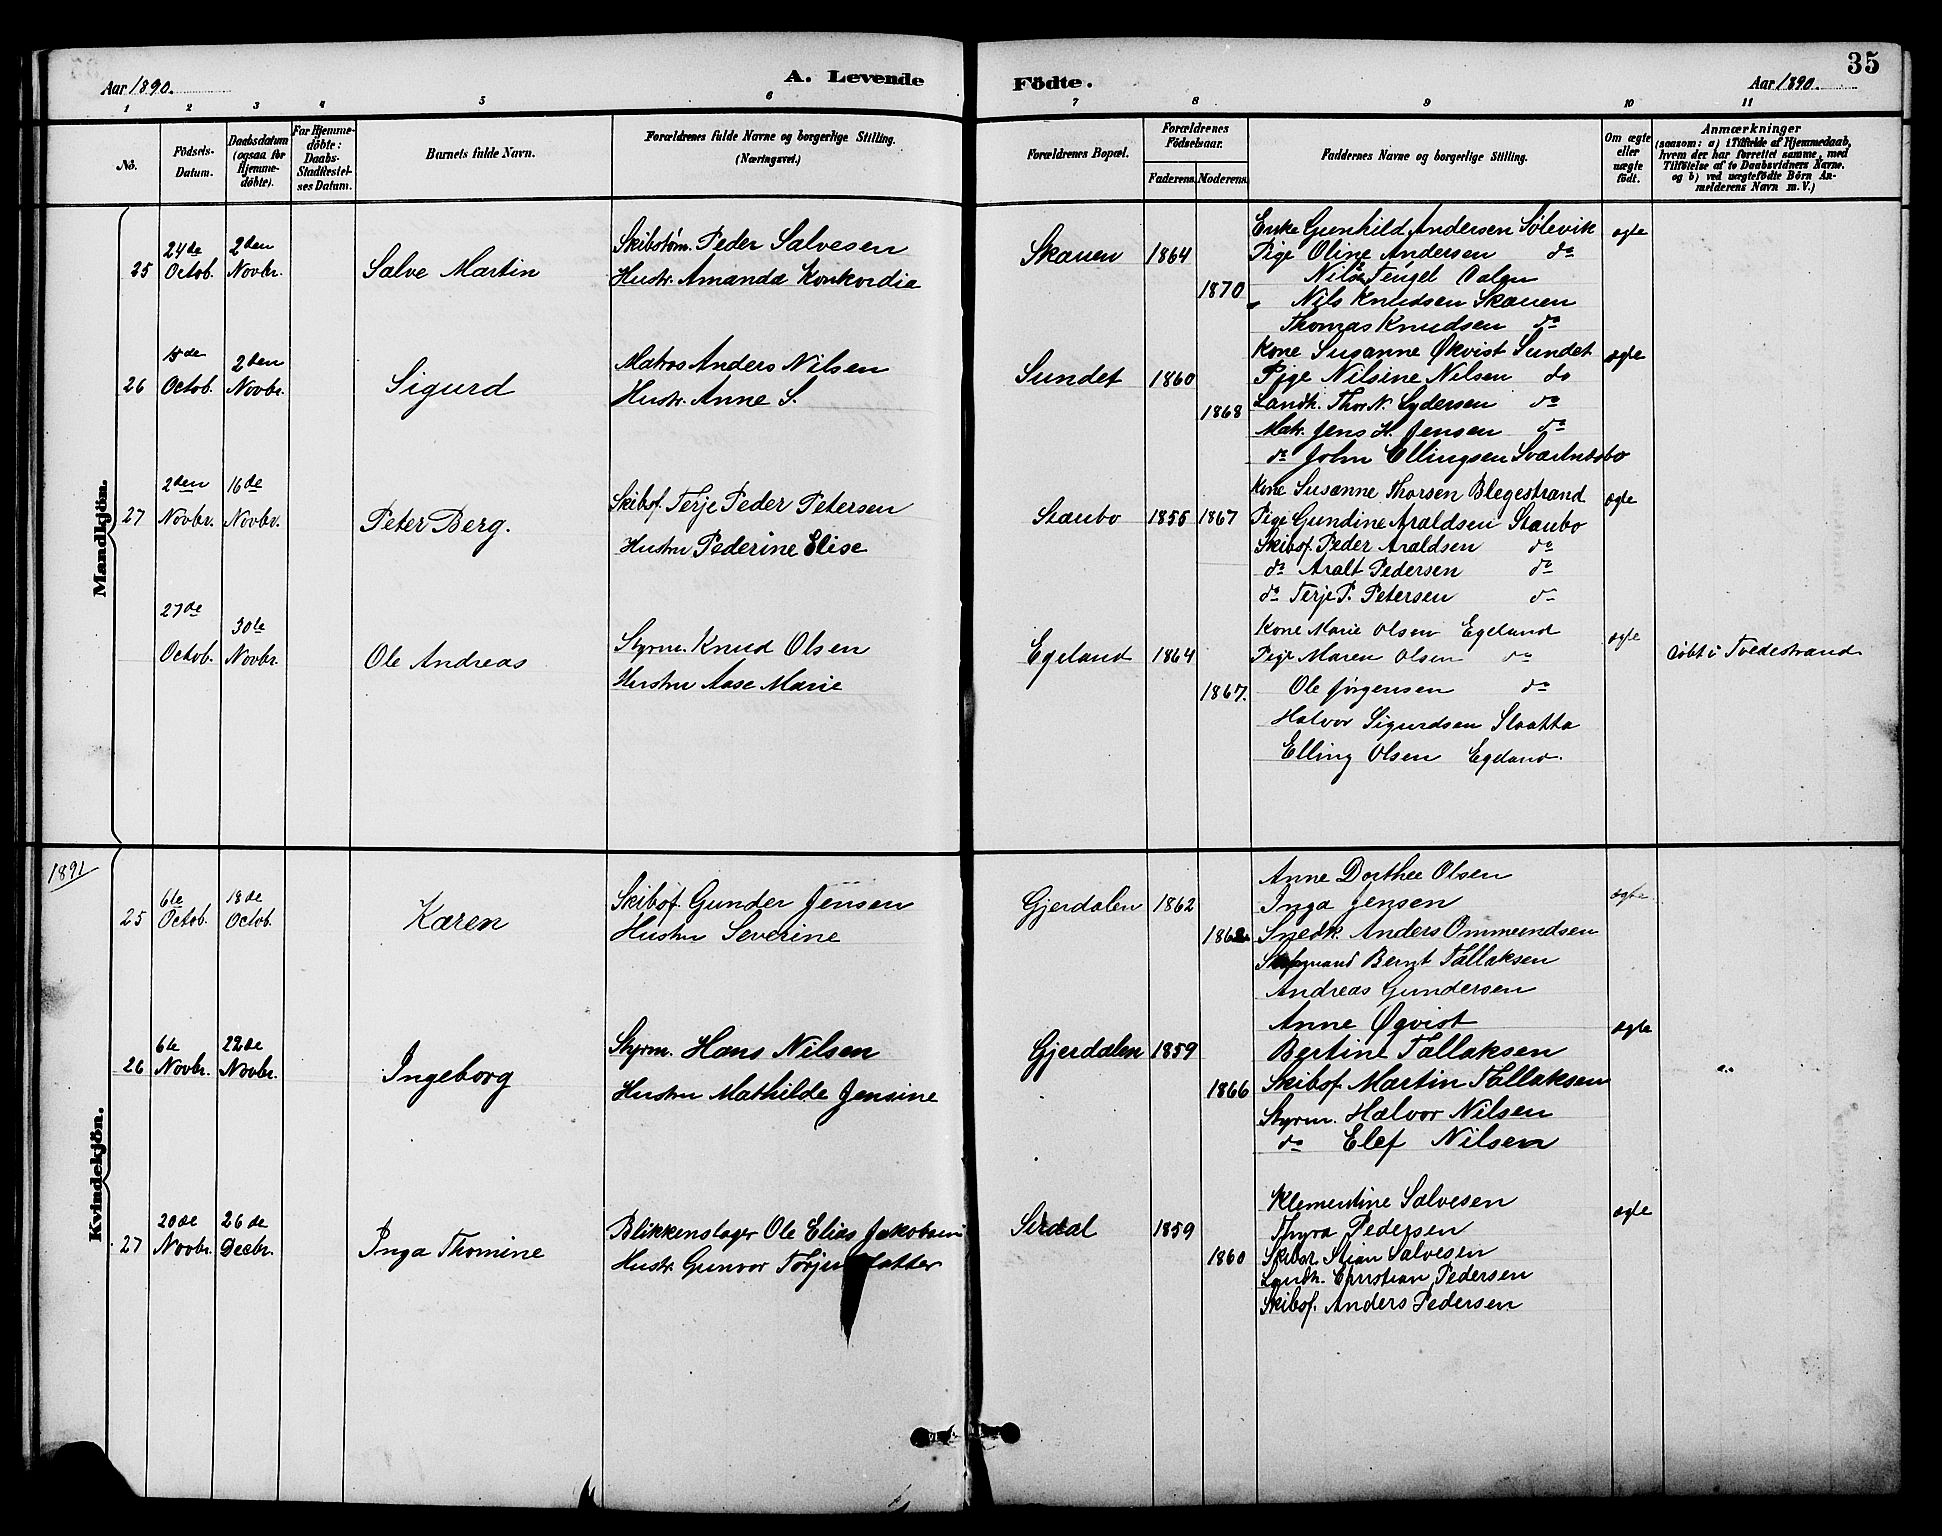 Aar 1890.
A. Levende
Födte.
Aar 1890.
35
1 2 3 4 5 6 7 8 9 10 11
No.
Födsels-Datum.
Daabsdatum (ogsaa for Hjemme-döbte).
For Hjemme-döbte: Daabs-Stadfæstel-ses Datum.
Barnets fulde Navn.
Forældrenes fulde Navne og borgerlige Stilling. (Næringsvei.)
Forældrenes Bopæl.
Forældrenes Födselsaar.
Faderens.
Moderens.
Faddernes Navne og borgerlige Stilling.
Om ægte eller uægte födt.
Anmærkninger
(saasom: a) i Tilfælde af Hjemmedaab,
hvem der har forrettet samme, med
Tilföielse af to Daabsvidners Navne.
og b) ved uægtefödte Börn An-
melderens Navn m. V.)
Mandkjön.
25 24de Octob. 2den Novbr. Salve Martin
Skibstøm. Peder Salvesen
Hustr. Amanda Konkordia
Skauen 1864 1870
Enke Gunhild Andersen Sølevik ægte
Pige Oline Andersen do
Nils Tengel
Nils Knudsen Skauen
Thomas Knudsen do
26 Octob. 2den Novbr. Sigurd
Matros Anders Nilsen
Hustr. Anne S.
Sundet 1860 1868
Kone Susanne Økvist Sundet ægte
Pige Nilsine Nilsen do
Landh. Thor N. Lydersen do
Matr. Jens H. Jensen do
do John Ellingsen
27 2den Novbr. 16de Novbr. Peter Berg.
Skibsf. Terje Peder Petersen
Hustru Pederine Elise
Staubo 1855 1867
Kone Susanne Thorsen Blegestrand ægte
Pige Gundine Araldsen Staubo
Skibsf. Peder Araldsen do
do Aralt Pedersen do
do Terje P. Petersen do
27de Octob. 30te Novbr. Ole Andreas
Styrm. Knud Olsen
Hustru Aase Marie
Egeland 1864 1867.
Kone Marie Olsen Egeland ægte
Pige Maren Olsen do
Ole Jørgensen do
Halvor Sigurdsen Slaatta
Elling Olsen Egeland.
døbt i Tvedestrand
1891
Kvindekjön.
25 6te Octob. 18de Octob. Karen
Skibsf. Gunder Jensen
Hustru Severine
Gjerdalen 1862 1862
Anne Dorthee Olsen ægte
Inga Jensen
Snedk. Anders Ommundsen
Bernt Tallaksen
Andreas Gundersen
26 6te Novbr. 22de Novbr. Ingeborg
Styrm. Hans Nilsen
Hustru Mathilde Jensine
Gjerdalen 1859 1866
Anne Øqvist ægte
Bertine Tallaksen
Skibsf. Martin Tallaksen
Styrm. Halvor Nilsen
do Elef Nilsen
27 20de Novbr. 26de Decbr. Inga Thomine
Blikkenslager Ole Elias Jakobsen
Hustr. Gunvor
Sirdal 1859 1860
Klementine Salvesen ægte
Thyra Pedersen
Stian Salvesen
Landh. Christian Pedersen
Skibsf. Anders Pedersen